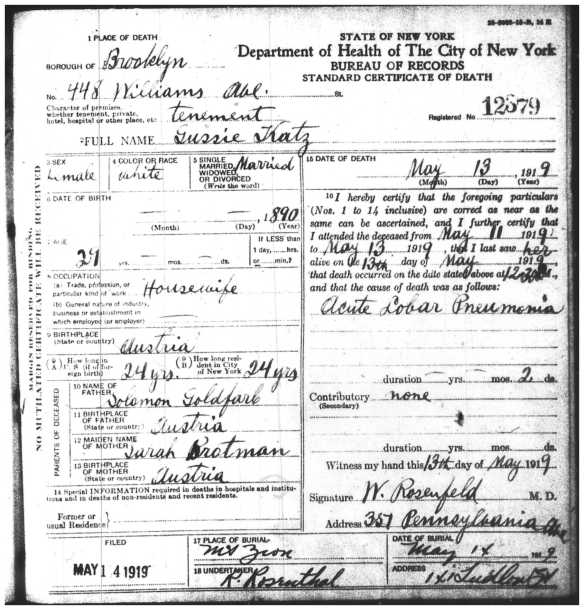 1 PLACE OF DEATH
STATE OF NEW YORK
Department of Health of The City of New York
BUREAU OF RECORDS
STANDARD CERTIFICATE OF DEATH
BOROUGH OF Brooklyn
No. 448 Williams Ave. St.
Character of premises,
whether tenement, private,
hotel, hospital or other place, etc. tenement
Registered No. 12579
2 FULL NAME Gussie Katz
3 SEX
Female
4 COLOR OR RACE
White
5 SINGLE
MARRIED
WIDOWED
OR DIVORCED
(Write the word)
Married
6 DATE OF BIRTH
1890
(Month) (Day) (Year)
7 AGE
29 yrs. mos. ds.
If LESS than
1 day, hrs.
or min.?
8 OCCUPATION
(a) Trade, profession, or
particular kind of work
Housewife
(b) General nature of industry,
business or establishment in
which employed (or employer)
9 BIRTHPLACE
(State or country)
Austria
(A) How long in
U. S. (if of for-
eign birth) 24 yrs.
(B) How long resi-
dent in City
of New York 24 yrs
PARENTS OF DECEASED
10 NAME OF
FATHER
Solomon Goldfarb
11 BIRTHPLACE
OF FATHER
(State or country)
Austria
12 MAIDEN NAME
OF MOTHER
Sarah Brotman
13 BIRTHPLACE
OF MOTHER
(State or country)
Austria
14 Special INFORMATION required in deaths in hospitals and institu-
tions and in deaths of non-residents and recent residents.
Former or
usual Residence
15 DATE OF DEATH
May 13, 1919
(Month) (Day) (Year)
16 I hereby certify that the foregoing particulars
(Nos. 1 to 14 inclusive) are correct as near as the
same can be ascertained, and I further certify that
I attended the deceased from May 11 1919
to May 13 1919, that I last saw her
alive on the 13th day of May 1919
that death occurred on the date stated above at
and that the cause of death was as follows:
Acute Lobar Pneumonia
duration yrs. mos. 2 ds.
Contributory none
(Secondary)
duration yrs. mos. ds.
Witness my hand this 13th day of May 1919
Signature W. Rosenfeld M. D.
Address 357 Pennsylvania Ave
FILED
MAY 14 1919
17 PLACE OF BURIAL
Mt Zion
DATE OF BURIAL
May 14 1919
18 UNDERTAKER
R. Rosenthal
ADDRESS
141 Ludlow St
MARGIN RESERVED FOR BINDING
NO MUTILATED CERTIFICATE WILL BE RECEIVED